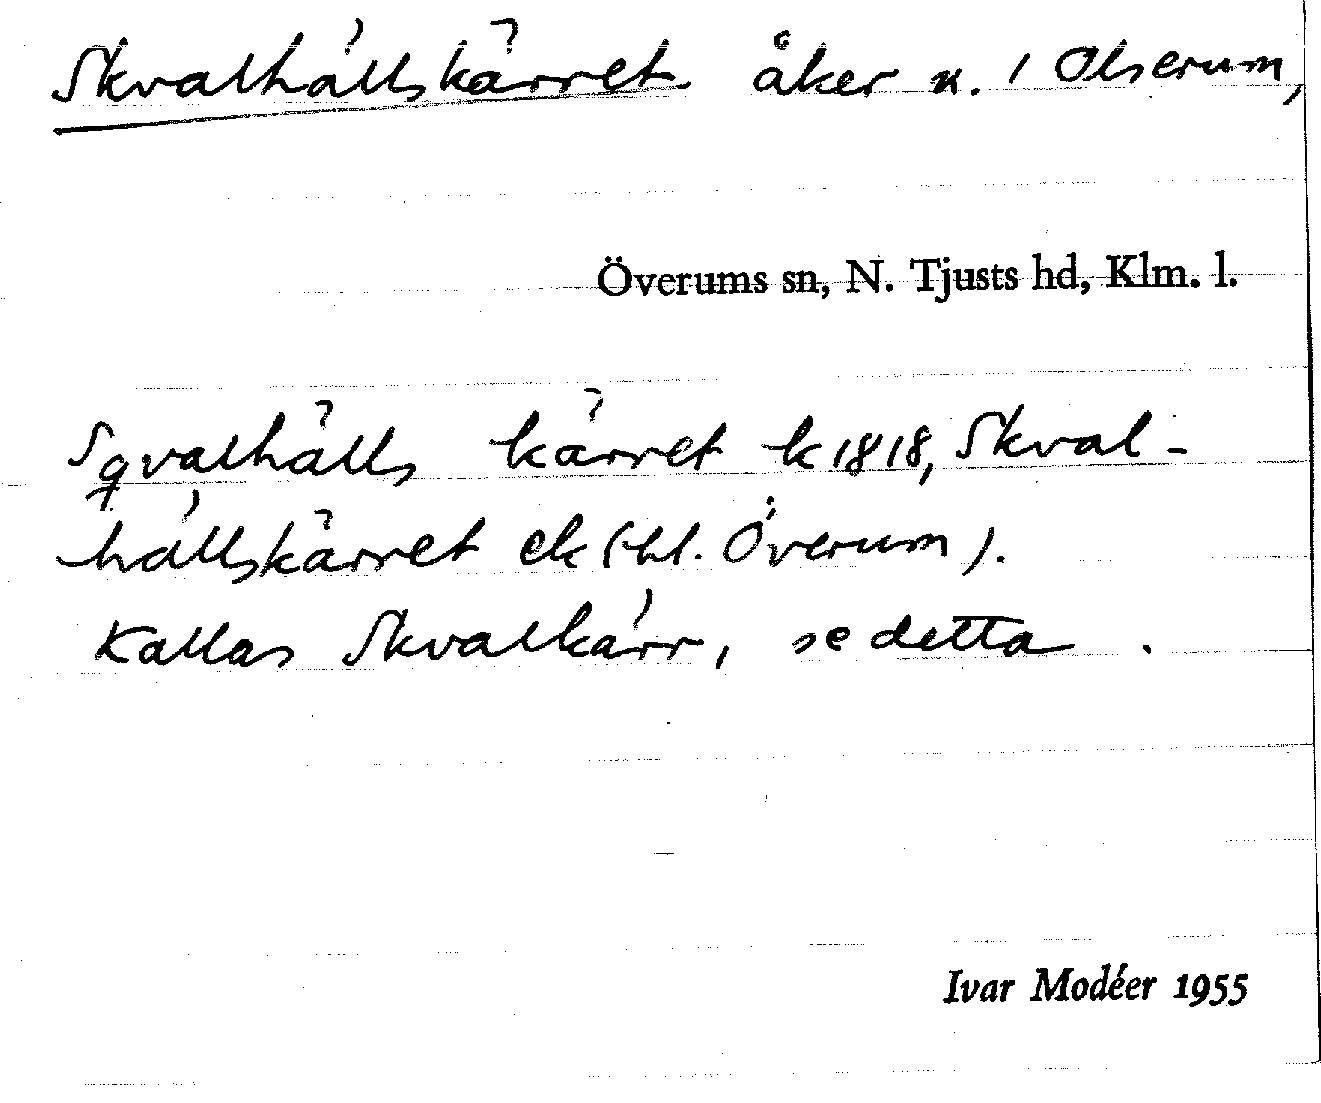 Skvalhällskärret åker n. 1 Olserum,
Överums sn, N. Tjusts hd, Klm. l.
Sqvalhälls kärret k 1818, Skval-
hällskärret ek (bl. Överum).
Kallas Skvalkärr, se detta.
Ivar Modéer 1955